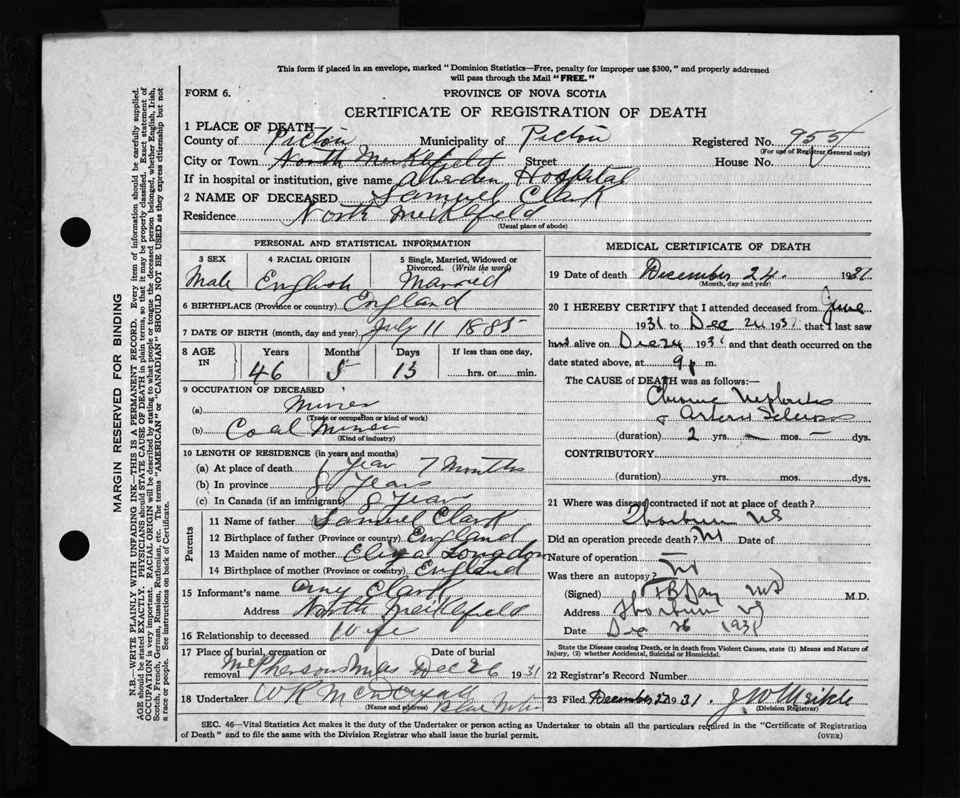 This form if placed in an envelope, marked "Dominion Statistics—Free, penalty for improper use $300," and properly addressed
will pass through the Mail "FREE."
FORM 6.
PROVINCE OF NOVA SCOTIA
CERTIFICATE OF REGISTRATION OF DEATH
1 PLACE OF DEATH
County of Pictou Municipality of Pictou Registered No. 955
(For use of Registrar General only)
City or Town North Meiklefield Street House No.
If in hospital or institution, give name Aberdeen Hospital
2 NAME OF DECEASED Samuel Clark
Residence North Meiklefield
(Usual place of abode)
PERSONAL AND STATISTICAL INFORMATION
3 SEX 4 RACIAL ORIGIN 5 Single, Married, Widowed or
Divorced. (Write the word)
Male English Married
6 BIRTHPLACE (Province or country) England
7 DATE OF BIRTH (month, day and year) July 11 1885
8 AGE Years Months Days If less than one day,
IN 46 5 13 hrs. or min.
9 OCCUPATION OF DECEASED
(a) Miner
(Trade or occupation or kind of work)
(b) Coal Miner
(Kind of industry)
10 LENGTH OF RESIDENCE (in years and months)
(a) At place of death Year 7 Months
(b) In province 8 Years
(c) In Canada (if an immigrant) 8 Years
Parents
11 Name of father Samuel Clark
12 Birthplace of father (Province or country) England
13 Maiden name of mother Eliza Longdon
14 Birthplace of mother (Province or country) England
15 Informant's name Amy Clark
Address North Meiklefield
16 Relationship to deceased Wife
17 Place of burial, cremation or Date of burial
removal McPhersons Mills Dec 26 1931
18 Undertaker W R
(Name and address)
MEDICAL CERTIFICATE OF DEATH
19 Date of death December 24. 1931
(Month, day and year)
20 I HEREBY CERTIFY that I attended deceased from June
1931 to Dec 24 1931 that I last saw
him alive on Dec 24 1931 and that death occurred on the
date stated above, at 9 p m.
The CAUSE OF DEATH was as follows:
Chronic Nephritis
& Arterio Sclerosis
(duration) 2 yrs. – mos. – dys.
CONTRIBUTORY
(duration) yrs. mos. dys.
21 Where was disease contracted if not at place of death?
Thorburn NS
Did an operation precede death? No Date of
Nature of operation —
Was there an autopsy? No
(Signed) Day MD M.D.
Address Thorburn NS
Date Dec 26 1931
State the Disease causing Death, or in death from Violent Causes, state (1) Means and Nature of
Injury, (2) whether Accidental, Suicidal or Homicidal.
22 Registrar's Record Number
23 Filed December 1931 J W Meikle
(Division Registrar)
SEC. 46—Vital Statistics Act makes it the duty of the Undertaker or person acting as Undertaker to obtain all the particulars required in the "Certificate of Registration
of Death" and to file the same with the Division Registrar who shall issue the burial permit.
(OVER)
MARGIN RESERVED FOR BINDING
N.B.—WRITE PLAINLY WITH UNFADING INK—THIS IS A PERMANENT RECORD. Every item of information should be carefully supplied.
AGE should be stated EXACTLY. PHYSICIANS should STATE CAUSE OF DEATH in plain terms, so that it may be properly classified. Exact statement of
OCCUPATION is very important. RACIAL ORIGIN will be described by stating to what people or tongue the deceased person belonged, whether English, Irish,
Scotch, French, German, Russian, Ruthenian, etc. The terms "AMERICAN" or "CANADIAN" SHOULD NOT BE USED as they express citizenship but not
a race or people. See instructions on back of Certificate.